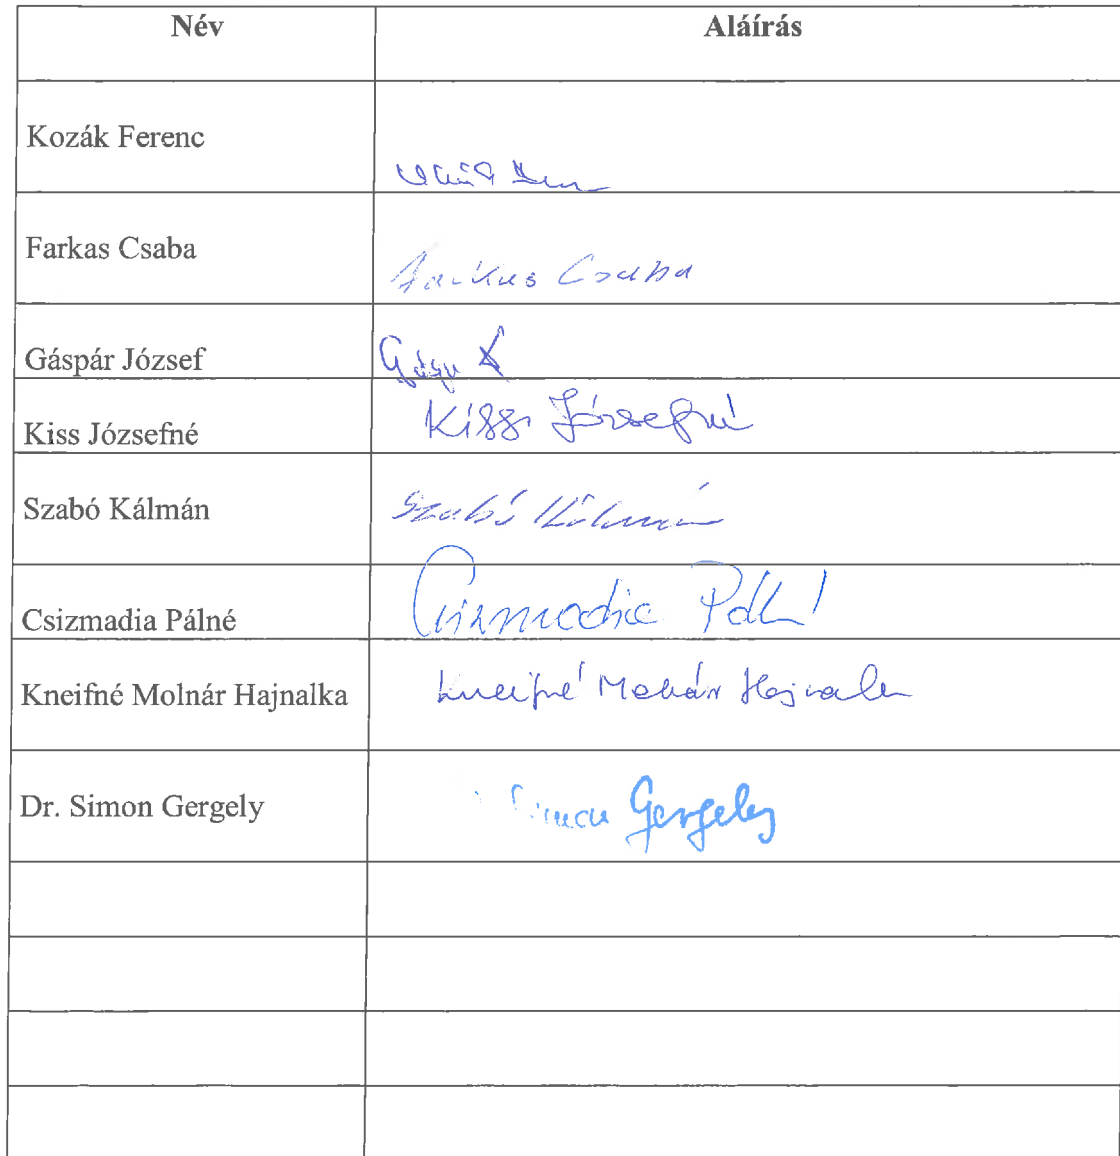 Név Aláírás
Kozák Ferenc
Farkas Csaba Farkas Csaba
Gáspár József
Kiss Józsefné Kiss Józsefné
Szabó Kálmán Szabó Kálmán
Csizmadia Pálné Csizmadia
Kneifné Molnár Hajnalka Kneifné Molnár
Dr. Simon Gergely Simon Gergely